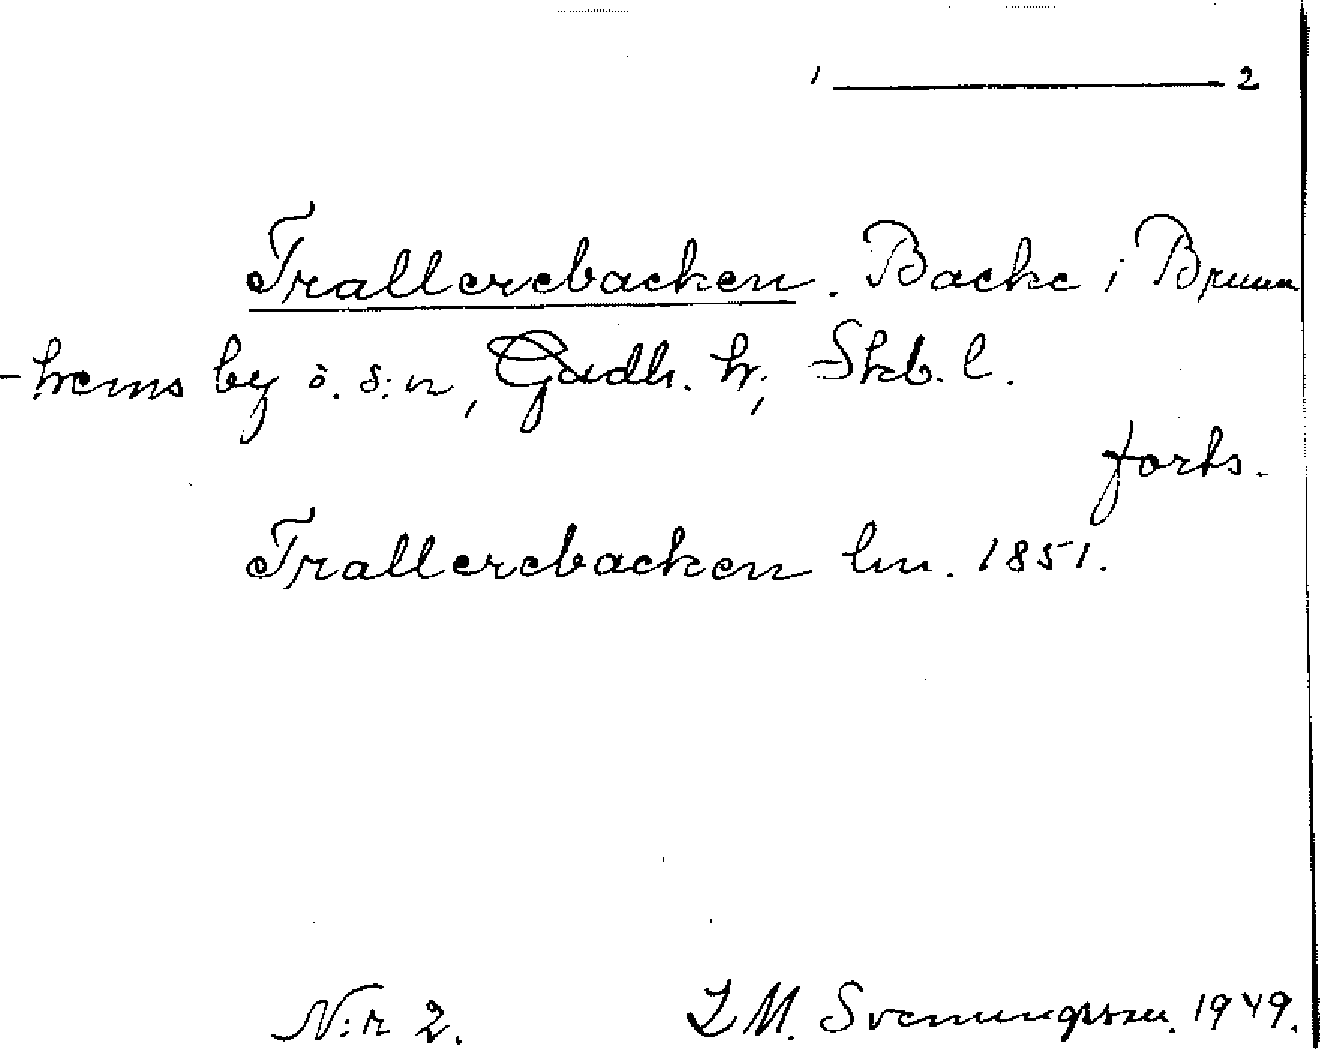 1 ——— 2
Trallerebacken. Backe i Brunn
-hems by ö. s:n, Gudh. h., Skb. l.
forts.
Trallerebacken lm. 1851.
N:r 2. L M. Svenungsson. 1949.